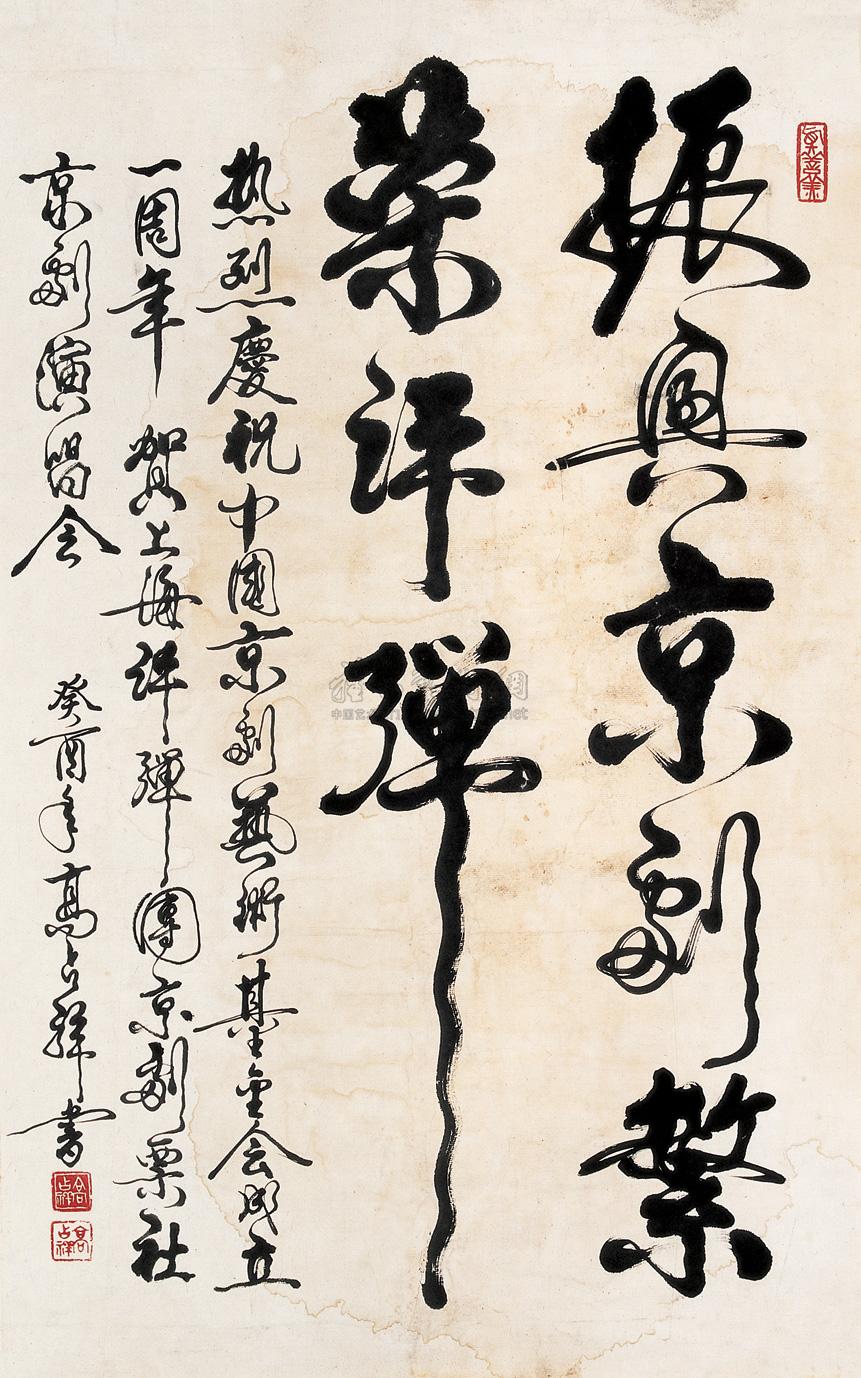 振興京劇繁
榮評彈
热烈慶祝中国京劇藝術基金会成立
一周年 賀上海評彈團京劇票社
京劇演唱会
癸酉年高占祥書
真善美
占祥
高占祥